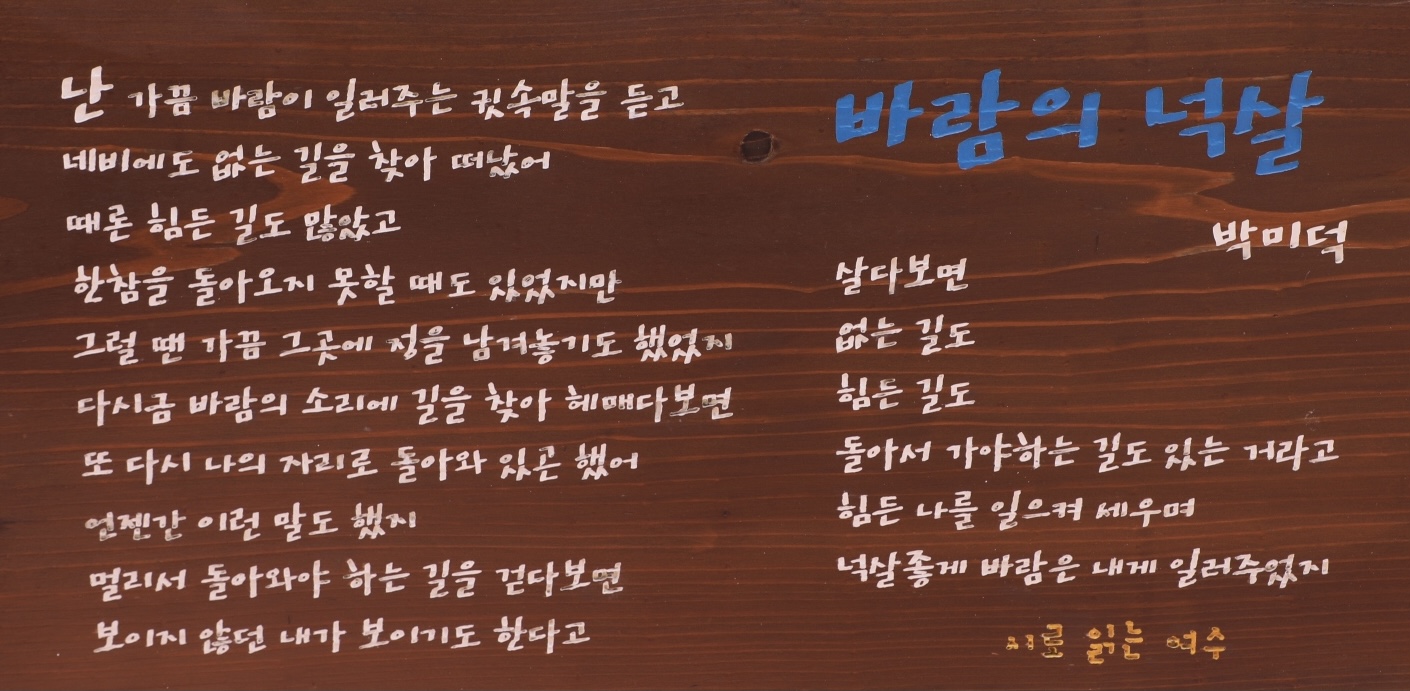 바람의 넉살
박미덕
난 가끔 바람이 일러주는 귓속말을 듣고
네비에도 없는 길을 찾아 떠났어
때론 힘든 길도 많았고
한참을 돌아오지 못할 때도 있었지만
그럴 땐 가끔 그곳에 정을 남겨놓기도 했었지
다시금 바람의 소리에 길을 찾아 헤매다보면
또 다시 나의 자리로 돌아와 있곤 했어
언젠간 이런 말도 했지
멀리서 돌아와야 하는 길을 걷다보면
보이지 않던 내가 보이기도 한다고
살다보면
없는 길도
힘든 길도
돌아서 가야하는 길도 있는 거라고
힘든 나를 일으켜 세우며
넉살좋게 바람은 내게 일러주었지
시로 읽는 여수